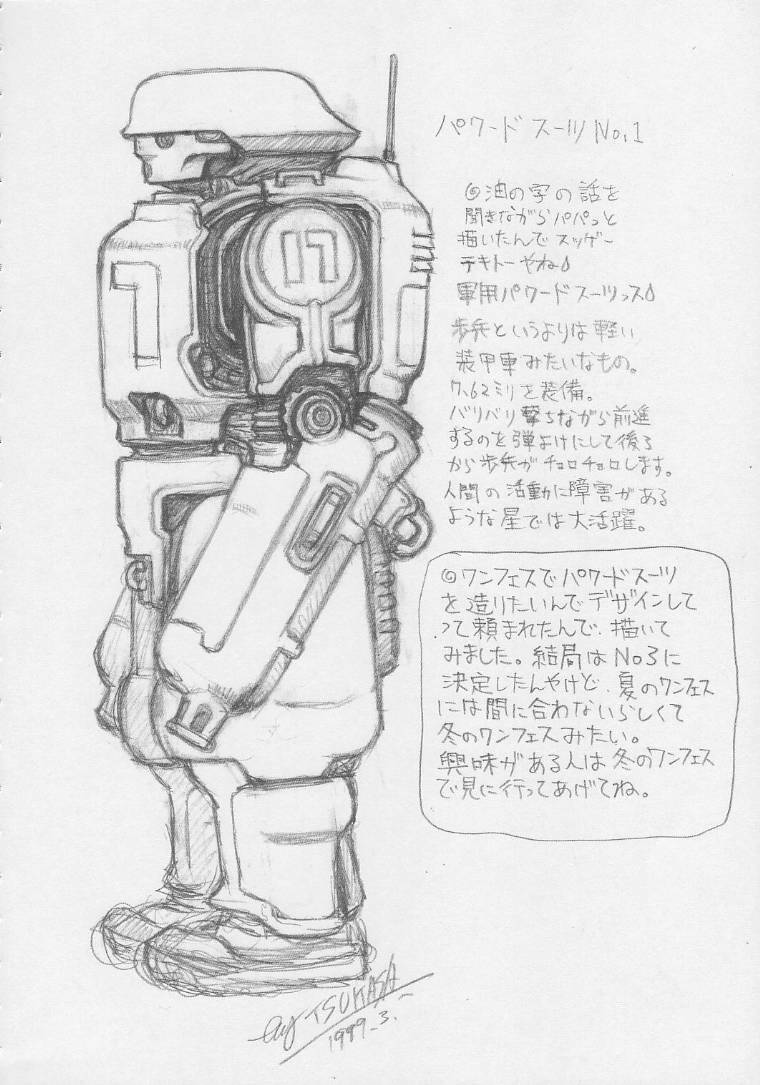 パワード スーツ No.1
◎油の字の話を
聞きながらパパっと
描いたんでスッゲー
テキトーやね
軍用パワードスーツっス
歩兵というよりは軽い
装甲車みたいなもの。
7.62ミリを装備。
バリバリ撃ちながら前進
するのを弾よけにして後ろ
から歩兵がチョロチョロします。
人間の活動に障害がある
ような星では大活躍。
◎ワンフェスでパワードスーツ
を造りたいんでデザインして
って頼まれたんで、描いて
みました。結局はNo3に
決定したんやけど、夏のワンフェス
には間に合わないらしくて
冬のワンフェスみたい。
興味がある人は冬のワンフェス
で見に行ってあげてね。
17
by TSUKASA
1999.3.